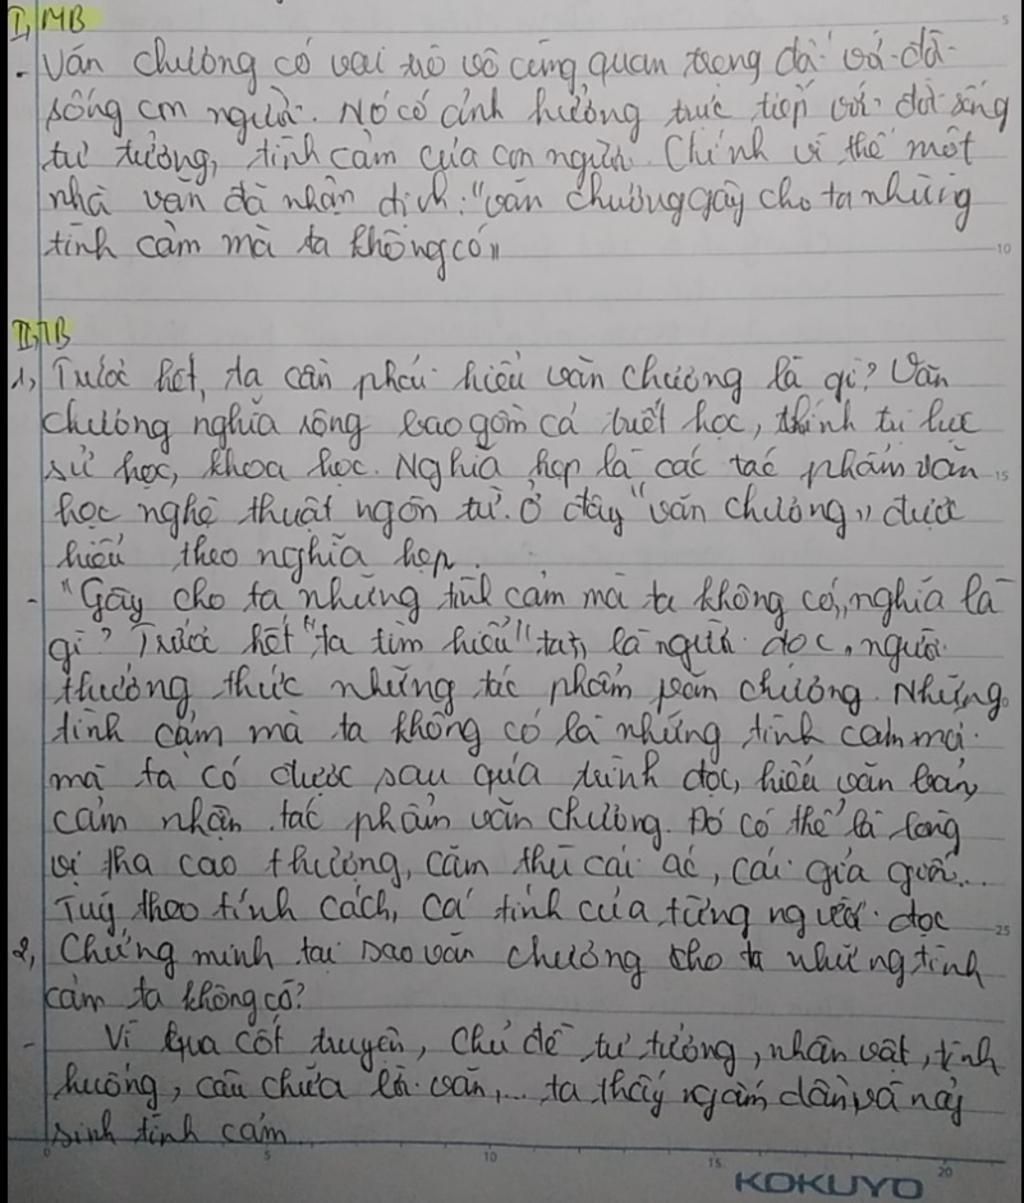 I, MB
- Văn chương có vai trò vô cùng quan trọng đời với đời
sống con người. Nó có ảnh hưởng trực tiếp với đời sống
tư tưởng, tình cảm của con người. Chính vì thế một
nhà văn đã nhận định: "văn chương gây cho ta những
tình cảm mà ta không có"
II, TB
1, Trước hết, ta cần phải hiểu văn chương là gì? Văn
chương nghĩa rộng bao gồm cả triết học, chính trị học
sử học, khoa học. Nghĩa hẹp là các tác phẩm văn
học nghệ thuật ngôn từ. Ở đây "văn chương" được
hiểu theo nghĩa hẹp.
- "Gây cho ta những tình cảm mà ta không có" nghĩa là
gì? Trước hết "ta tìm hiểu" "ta", là người đọc, người
thưởng thức những tác phẩm văn chương. Những
tình cảm mà ta không có là những tình cảm mới
mà ta có được sau quá trình đọc, hiểu văn bản,
cảm nhận tác phẩm văn chương. Đó có thể là lòng
vị tha cao thượng, căm thù cái ác, cái giả giối...
Tuỳ theo tính cách, cá tính của từng người đọc
2, Chứng minh tại sao văn chương cho ta những tình
cảm ta không có?
- Vì qua cốt truyện, chủ đề tư tưởng, nhân vật, tình
huống, câu chữa lời văn,... ta thấy ngấm dần và nảy
sinh tình cảm
KOKUYO